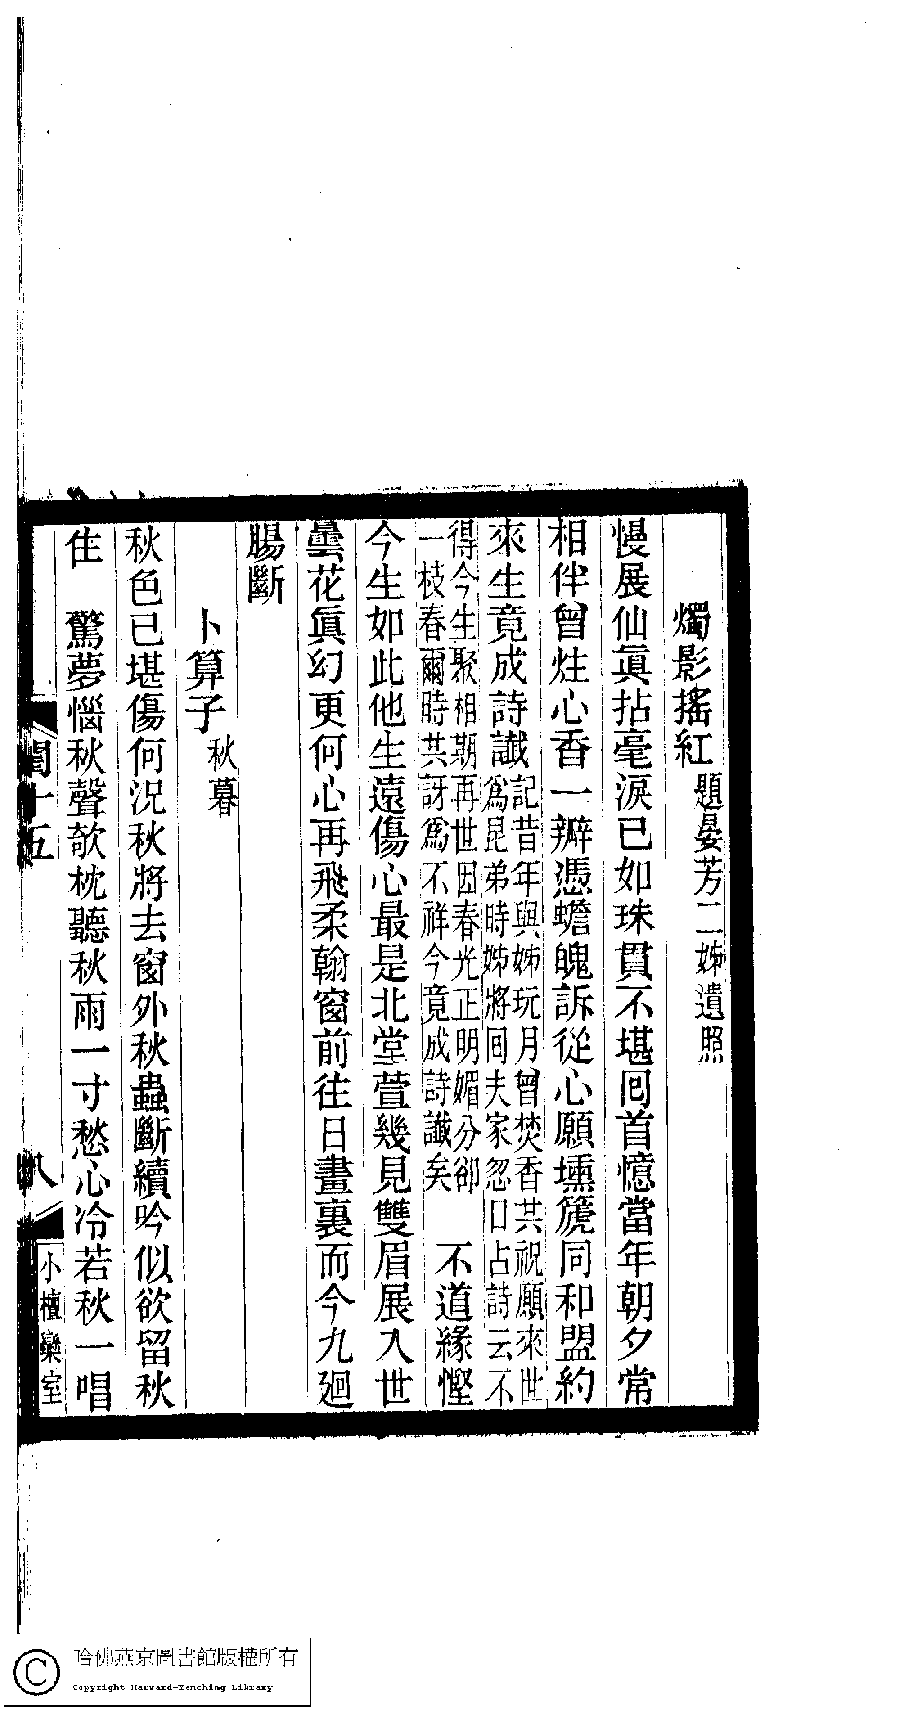 燭影搖紅題晏芳二姊遺照
慢展仙眞拈毫淚已如珠貫不堪囘首憶當年朝夕常
相伴曾炷心香一瓣憑蟾魄訴從心願壎篪同和盟約
來生竟成詩讖記昔年與姊玩月曾焚香共祝願來世
爲昆弟時姊將囘夫家忽口占詩云不
得今生聚相期再世因春光正明媚分卻
一枝春爾時共訝爲不祥今竟成詩讖矣
不道緣慳
今生如此他生遠傷心最是北堂萱幾見雙眉展入世
曇花眞幻更何心再飛柔翰窗前往日畫裏而今九廻
腸斷
卜算子秋暮
秋色已堪傷何況秋將去窗外秋蟲斷續吟似欲留秋
住　驚夢惱秋聲欹枕聽秋雨一寸愁心冷若秋一唱
閨十五
八
小檀欒室
哈佛燕京圖書館版權所有
Copyright Harvard-Yenching Library